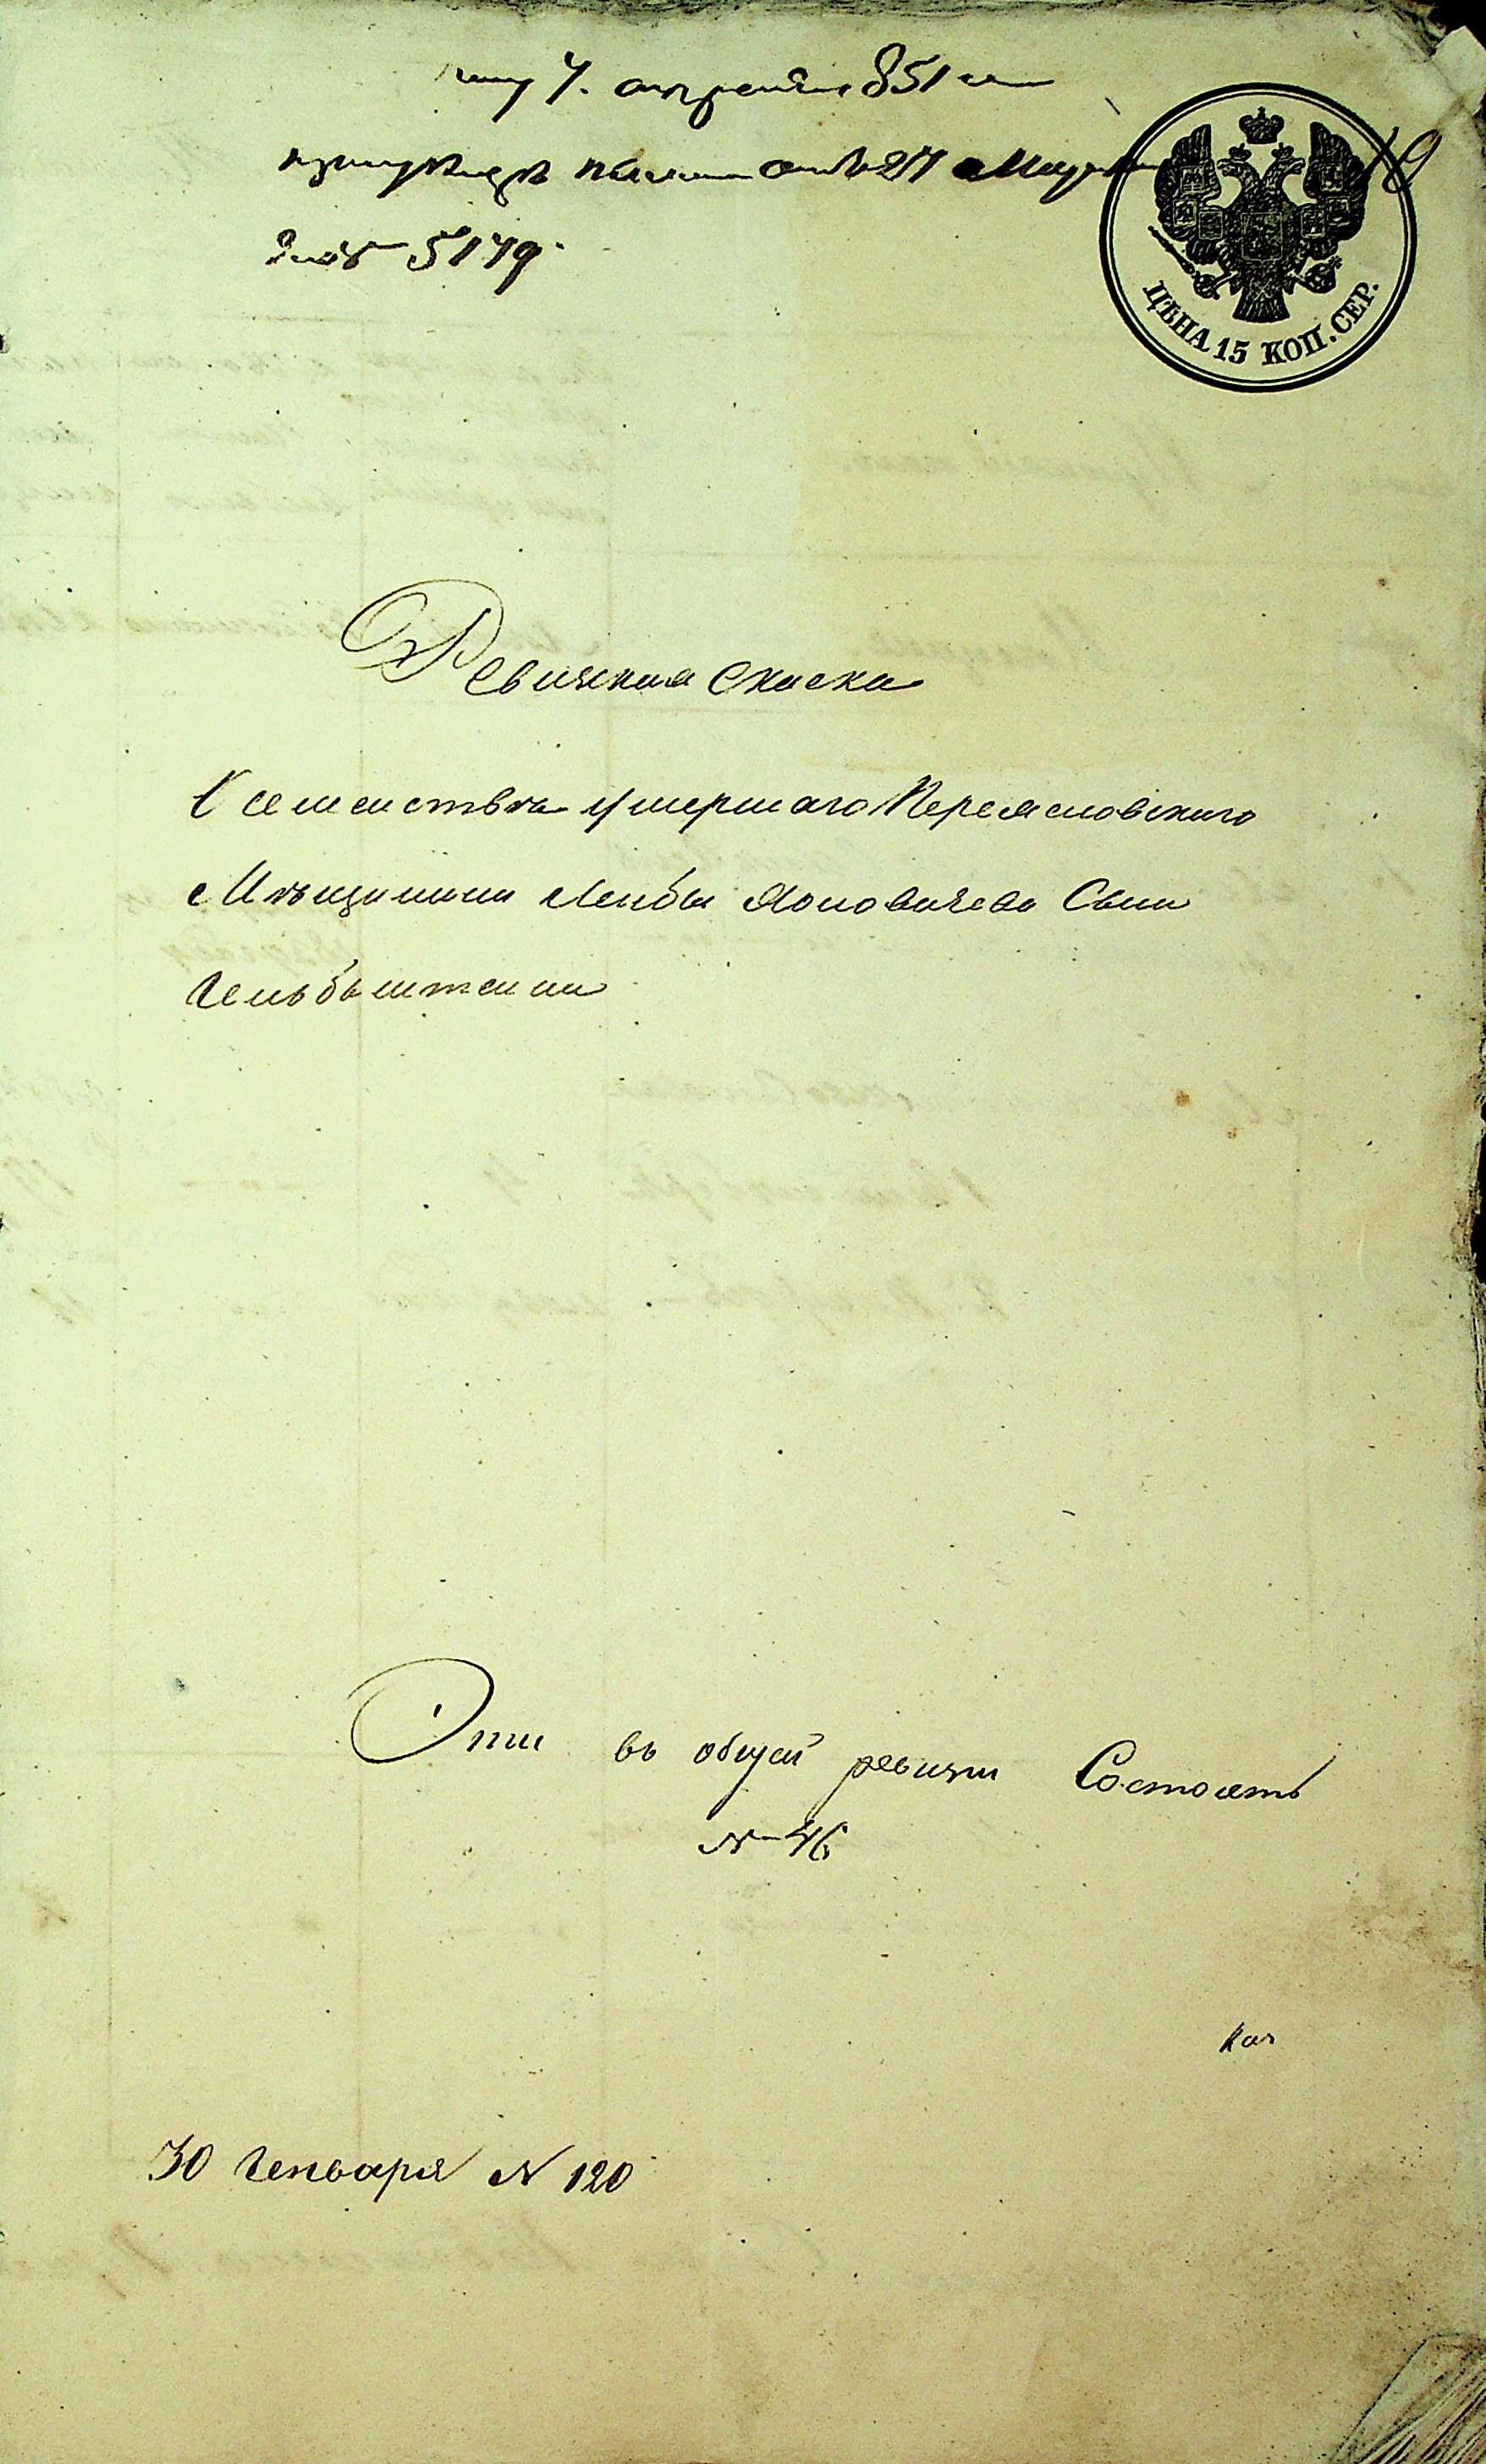 7. апреля 851
отъ 27 Мар
№ 5179.
19
ЦѢНА 15 КОП. СЕР.
Ревижская Скаска
О семействѣ умершаго Переясловского
Мѣщанина Лейбы Сына
Гельбштеина
Эти въ общей ревизи Состоятъ
№ 46
30 Генваря № 120